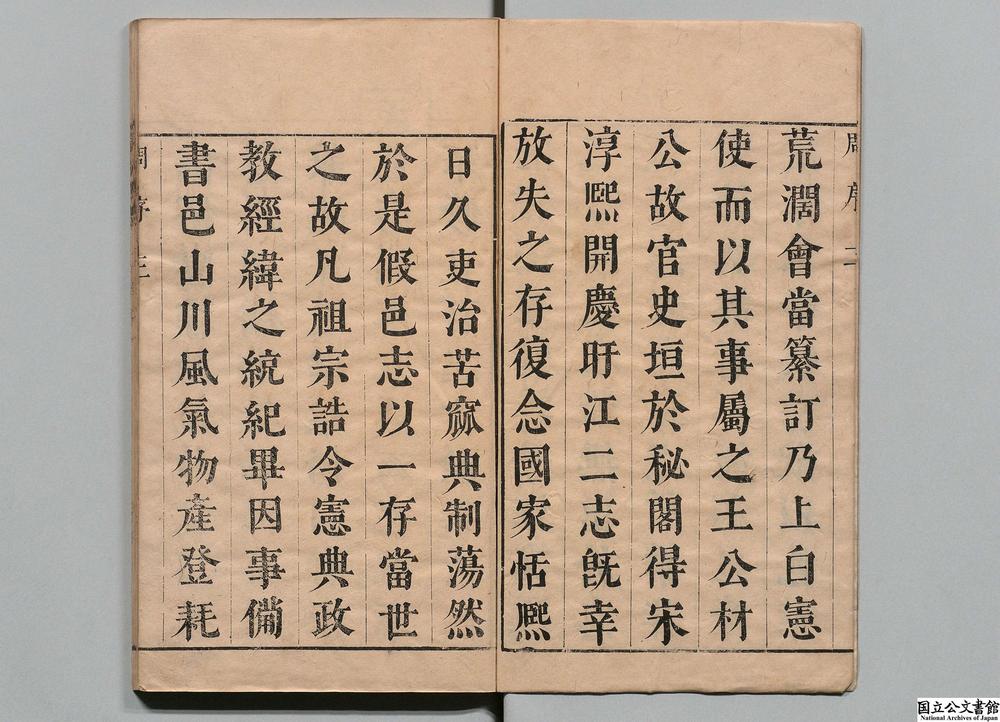 周序 二
荒濶會當纂訂乃上白憲
使而以其事屬之王公材
公故官史垣於秘閣得宋
淳熈開慶盱江二志旣幸
放失之存復念國家恬熈
日久吏治苦窳典制蕩然
於是假邑志以一存當世
之故凡祖宗誥令憲典政
教經緯之統紀畢因事僃
書邑山川風氣物產登耗
周序 三
国立公文書館
National Archives of Japan